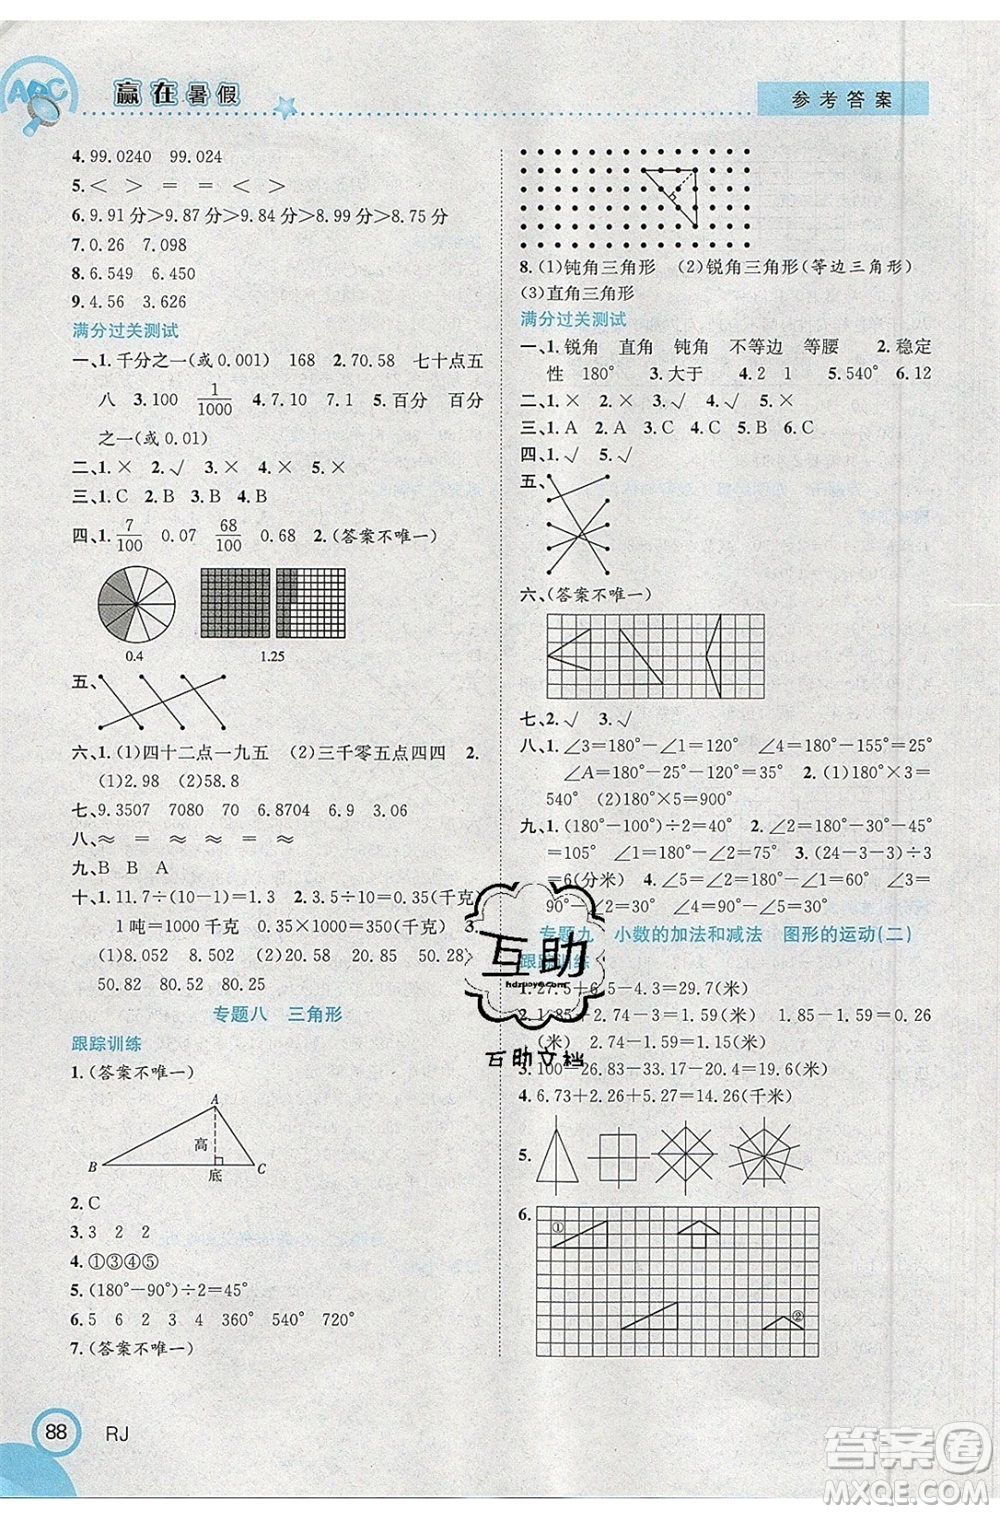 ABC
赢在暑假
参考答案
4.99.0240 99.024
5.＜ ＞ ＝ ＝ ＜ ＞
6.9.91分＞9.87分＞9.84分＞8.99分＞8.75分
7.0.26 7.098
8.6.549 6.450
9.4.56 3.626
满分过关测试
一、1.千分之一(或0.001) 168 2.70.58 七十点五
八 3.100 1/1000 4.7.10 7.1 5.百分 百分
之一(或0.01)
二、1.× 2.√ 3.× 4.×
三、1.C 2.A 3.B 4.B
四、1.7/100 0.07 68/100 0.68 2.(答案不唯一)
0.4 1.25
五、
六、1.(1)四十二点一九五 (2)三千零五点四四 2.
(1)2.98 (2)58.8
七、9.3507 7080 70 6.8704 6.9 3.06
八、≈ ＝ ≈ ＝ ≈ ≈
九、B B A
十、1.11.7÷(10－1)＝1.3 2.3.5÷10＝0.35(千克)
1吨＝1000千克 0.35×1000＝350(千克) 3.
(1)8.052 (2)80.25 20.85 20.58 50.82
52.80 80.52
专题八 三角形
跟踪训练
1.(答案不唯一)
A
高
B
底
C
2.C
3.3 2 2
4.①③④⑤
5.(180°－90°)÷2＝45°
6.5 6 2 3 4 360° 540° 720°
7.(答案不唯一)
88
RJ
8.(1)钝角三角形 (2)锐角三角形(等边三角形)
(3)直角三角形
满分过关测试
一、1.锐角 直角 钝角 不等边 等腰 2.稳定
性 180° 3.大于 4.2 1 5.540° 6.12
二、1.× 2.× 3.√ 4.√ 5.×
三、1.A 2.A 3.A 4.C 5.B 6.C
四、1.√ 2.√
五、
六、(答案不唯一)
七、2.√ 3.√
八、1.∠3＝180°－∠1＝120° ∠4＝180°－155°＝25°
∠A＝180°－∠3－∠4＝35° 2.(1)180°×3＝
540° (2)180°×5＝900°
九、1.(180°－100°)÷2＝40° 2.∠1＝180°－30°－45°
＝105° ∠1＝180°－∠2＝75° 3.(24－3－3)÷3
＝6(分米) 4.∠1＝180°－∠2＝60° ∠3＝
90°－∠1＝30° ∠4＝90°－∠2＝30°
专题九 小数的加法和减法 图形的运动(二)
跟踪训练
1.27.5＋6.5－4.3＝29.7(米)
2.1.85＋2.74－1.59＝3(米) 1.85－1.59＝0.26
(米) 2.74－1.59＝1.15(米)
3.100－26.83－28.35－25.22＝19.6(米)
4.6.73＋2.26＋5.27＝14.26(千米)
5.
6.
①
②
互助
hdzuoye.com
互助文档
答案圈
MXQE.COM